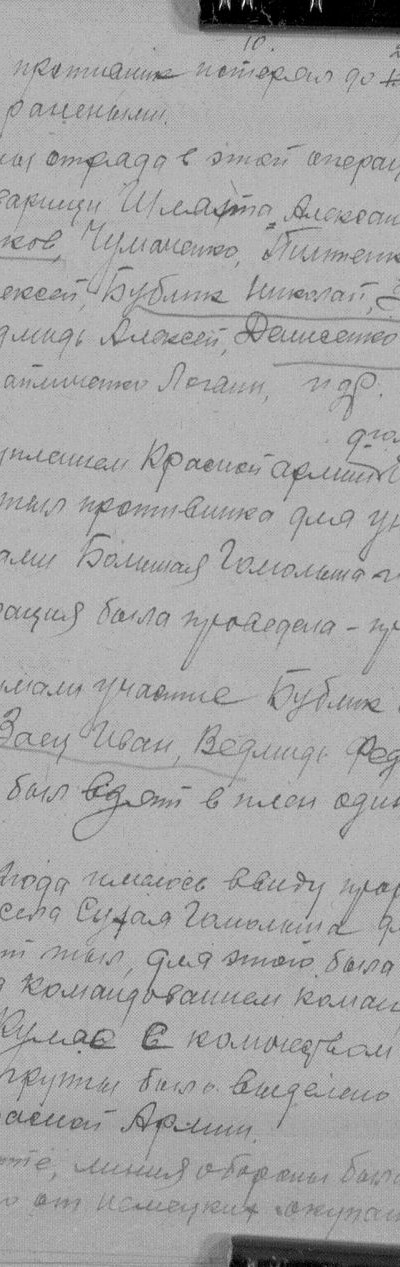 10.
противник потерял до
ранеными.
ны отряда в этой операц
варищи Шматта, Алексан
ков, Чумаченко, Пилтенк
ексей, Бублик Николай,
дмидь Алексей, Денисенко
Логвин, и др.
уплением Красной армии
тыл противника для ун
ами Большая Гомольша и
рация была проведена - пр
имали участие Бублик
Заец Иван, Ведмидь Фед
был взят в плен один
года имелось ввиду
села Сухая Гомольша д
тыл, для этого была
командованием коман
Кулас с количеством
группы было выделено
расной Армии.
линия обороны была
о от немецких оккупан